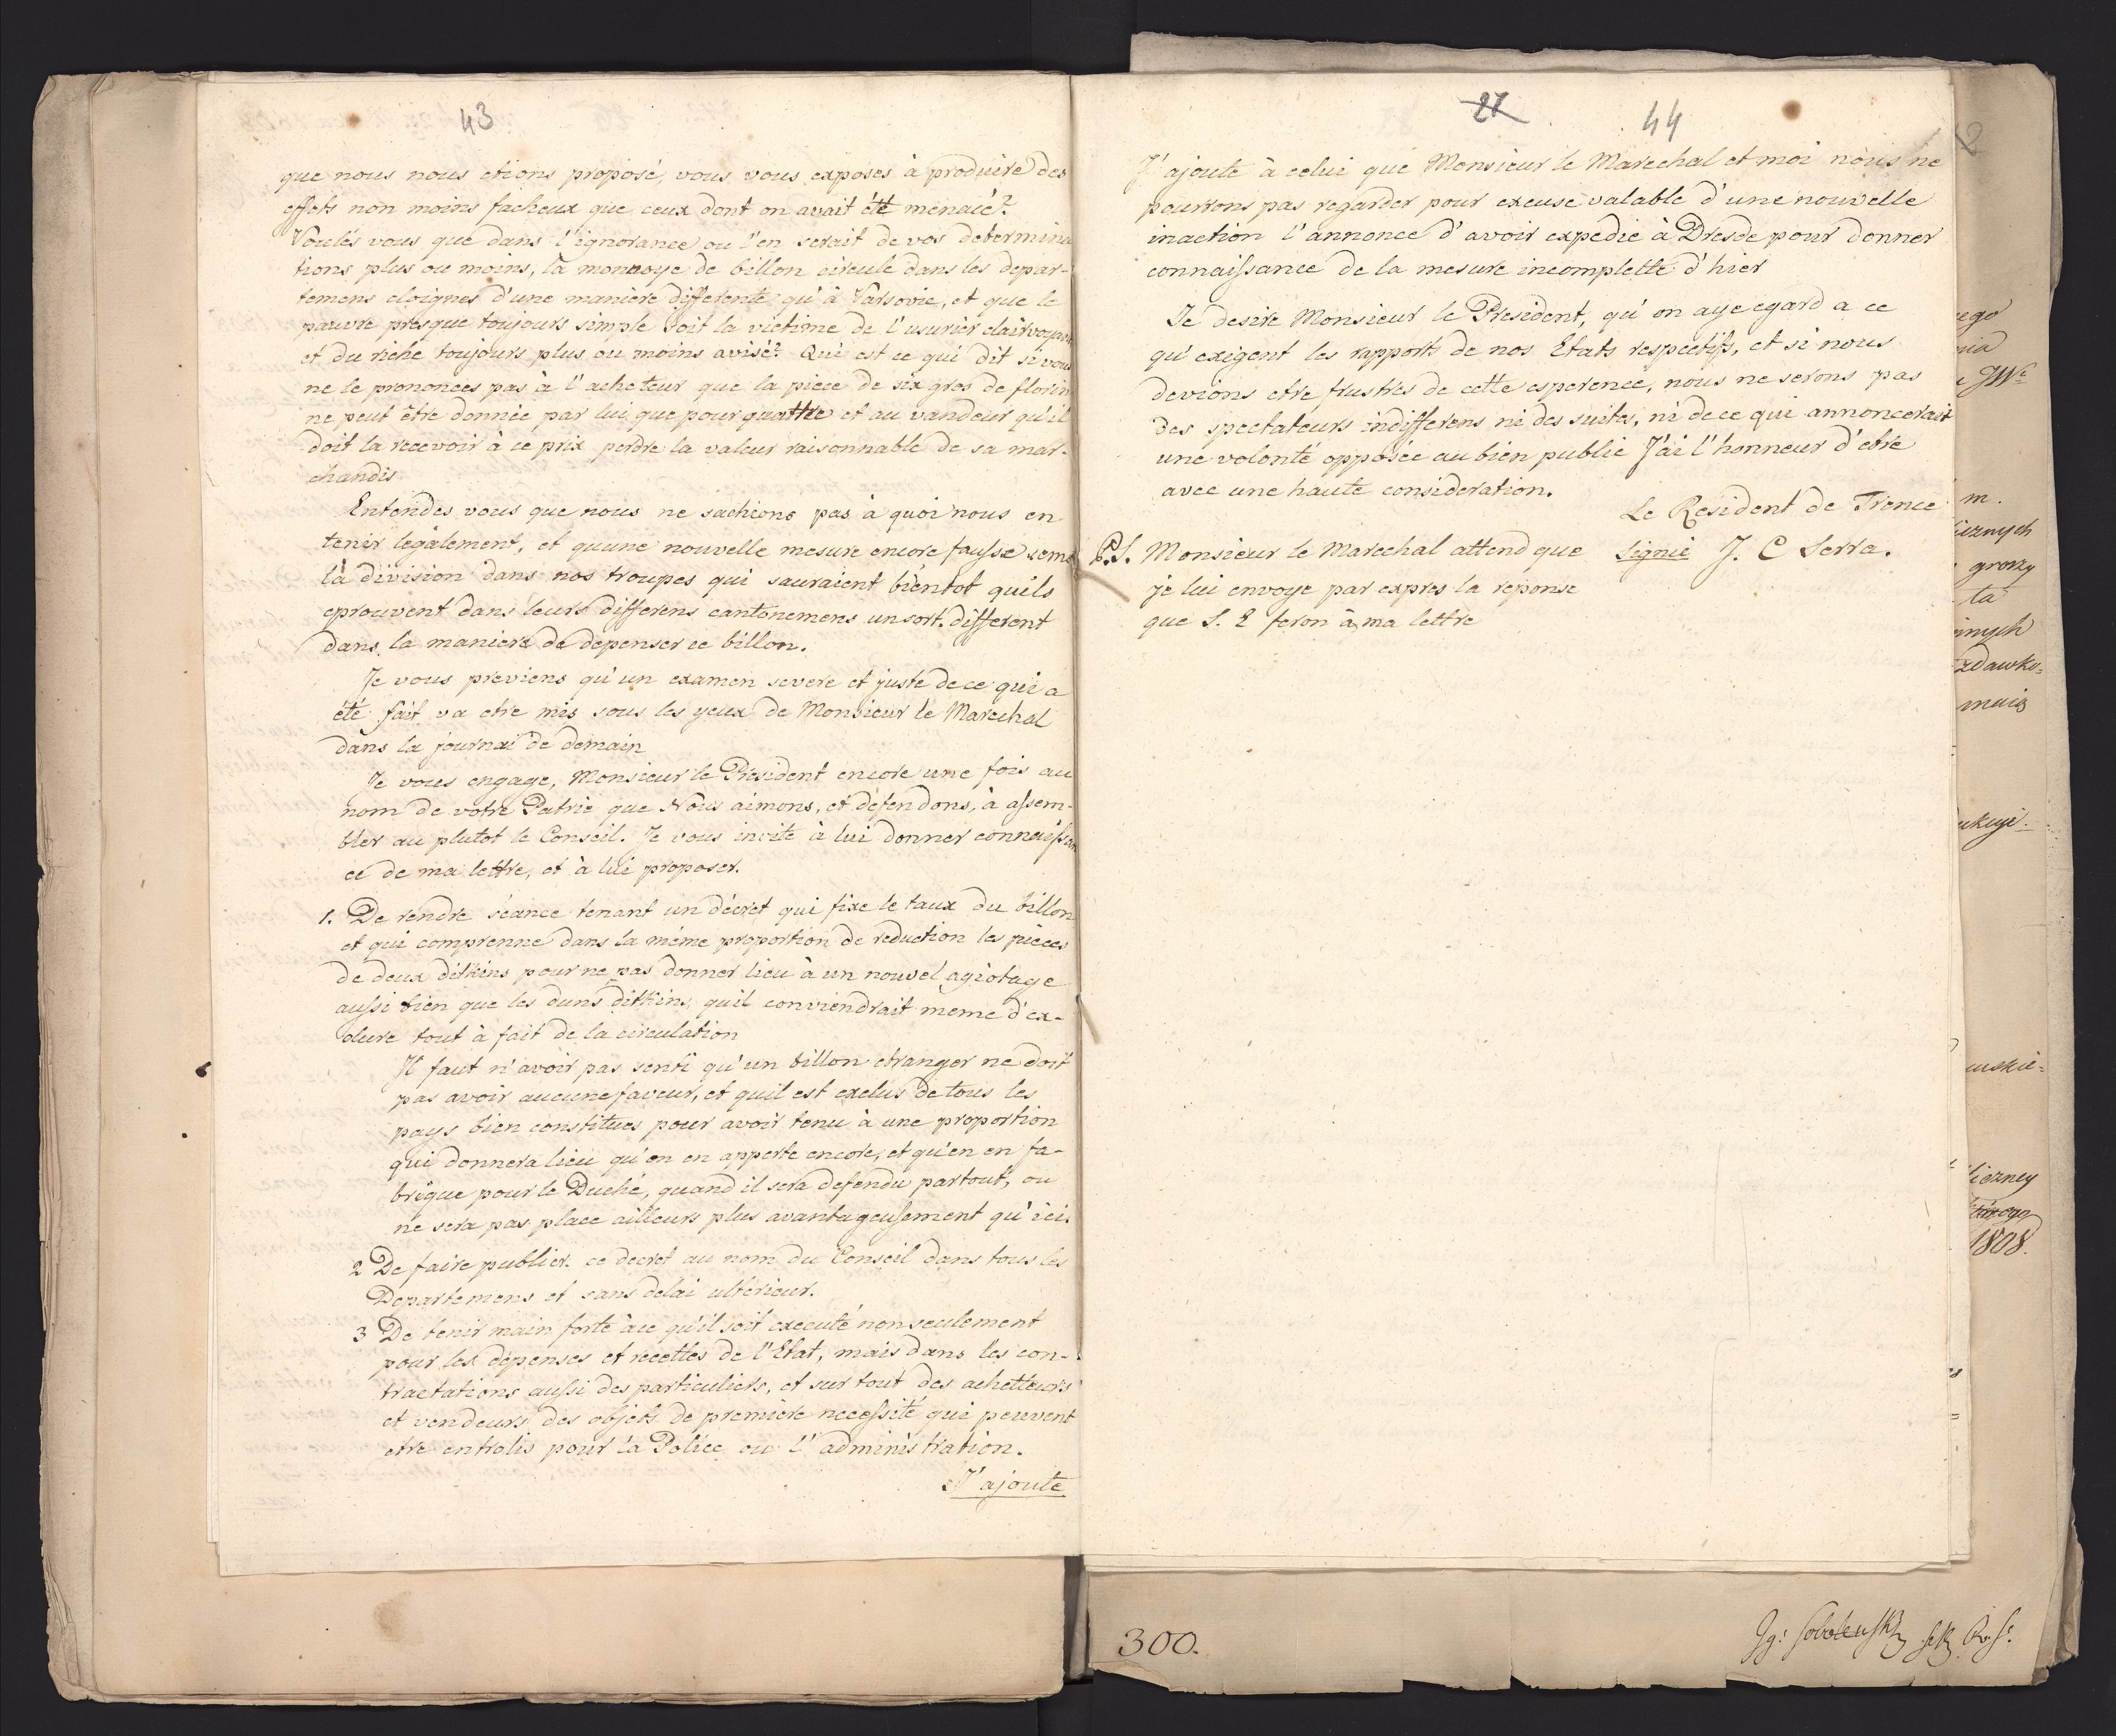 43
que nous nous etions proposé, vous vous exposes à produire des
effets non moins facheux que ceux dont on avait été menacé?
Voulés vous que dans l'ignorance ou l'en serait de vos determina
tions plus ou moins, la monnoye de billon circule dans les depar-
temens eloignes d'une maniere differente qu'à Varsovie, et que le
pauvre presque toujours simple soit la victime de l'usurier clairvoyant
et du riche toujours plus ou moins avisé? Qui est ce qui dit si vous
ne le prononces pas à l'acheteur que la piece de six gros de florin
ne peut être donnée par lui que pour quattre et au vandeur qu'il
doit la recevoir à ce prix perdre la valeur raisonnable de sa mar-
chandis
Entendes vous que nous ne sachions pas à quoi nous en
tenir légalement, et quune nouvelle mesure encore fausse seme
la division dans nos troupes qui sauraient bientot quils
eprouvent dans leurs differens cantonemens un sort different
dans la maniere de depenser ce billon.
Je vous previens qu'un examen severe et juste de ce qui a
été fait va etre mis sous les yeux de Monsieur le Marechal
dans la journai de demain
Je vous engage, Monsieur le President encore une fois au
nom de votre Patrie que Nous aimons, et défendons, à assem-
bler au plutot le Conseil. Je vous invite à lui donner connaissan
ce de ma lettre, et à lui proposer.
1. De rendre séance tenant un décret qui fixe le taux du billon
et qui comprenne dans la même proportion de reduction les pièces
de deux ditkins pour ne pas donner lieu à un nouvel agiotage
aussi bien que les duns ditkins, quil conviendrait meme d'ex-
clure tout à fait de la circulation
Il faut n'avoir pas senti qu'un billon etranger ne doit
pas avoir aucune faveur, et quil est exclus de tous les
pays bien constitues pour avoir tenu à une proportion
qui donnera lieu qu'on en apporte encore, et qu'en en fa-
brique pour le Duché, quand il sera defendu partout, ou
ne sera pas place ailleurs plus avantageusement qu'ici.
2 De faire publier ce decret au nom du Conseil dans tous les
Departemens et sans delai ulterieur.
3 De tenir main forte à ce qu'il soit executé non seulement
pour les dépenses et recettes de l'Etat, mais dans les con-
tractations aussi des particuliers, et sur tout des achetteurs
et vendeurs des objets de première necessité qui peuvent
etre entrolis pour la Police ou l'administration.
J'ajoute
27 44
J'ajoute à celui que Monsieur le Marechal et moi nous ne
pourrons pas regarder pour excuse valable d'une nouvelle
inaction l'annonce d'avoir expedié à Dresde pour donner
connaissance de la mesure incomplette d'hier
Je desire Monsieur le President, qu'on aye egard a ce
qu'exigent les rapports de nos Etats respectifs, et si nous
devions etre frustres de cette esperence, nous ne serons pas
des spectateurs indifferens ni des suites, ni de ce qui annoncerait
une volonté opposée au bien public J'ai l'honneur d'etre
avec une haute consideration.
Le Résident de Frence
Signié J. C Serra.
P.S. Monsieur le Marechal attend que
je lui envoye par expres la reponse
que S. E feron à ma lettre
2
ego
nia
JWe
m.
iernych
grozy
ta
innych
zdawko=
maia
ukuje.
uskie=
liczney
1808.
300.
Ig: Sobolewski